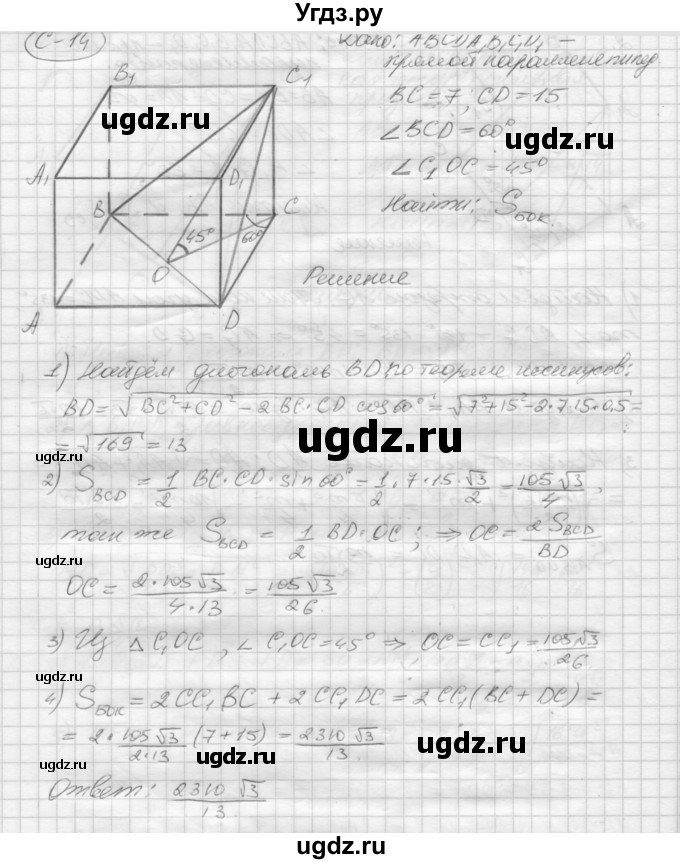 Угдз.ру
С-14
Дано: ABCDA₁B₁C₁D₁ –
прямой параллелепипед
BC = 7, CD = 15
∠BCD = 60°
∠C₁OC = 45°
Найти: Sбок.
B₁
C₁
ugdz.ru
ugdz.ru
A₁
D₁
B
C
45°
60°
O
A
D
Решение
ugdz.ru
1) Найдём диагональ BD по теореме косинусов:
BD = √BC² + CD² – 2 BC · CD cos 60° = √7² + 15² – 2·7·15·0,5 =
= √169 = 13
ugdz.ru
2) S_BCD = 1/2 BC · CD · sin 60° = 1/2 · 7 · 15 · √3/2 = 105√3/4,
так же S_BCD = 1/2 BD · OC; ⇒ OC = 2S_BCD/BD
ugdz.ru
ugdz.ru
OC = 2·105√3/4·13 = 105√3/26
3) Из △C₁OC, ∠C₁OC = 45° ⇒ OC = CC₁ = 105√3/26
ugdz.ru
4) Sбок = 2CC₁ BC + 2CC₁ DC = 2CC₁ (BC + DC) =
= 2·105√3/2·13 (7 + 15) = 2310√3/13
ugdz.ru
ugdz.ru
Ответ: 2310√3/13
ugdz.ru
ugdz.ru